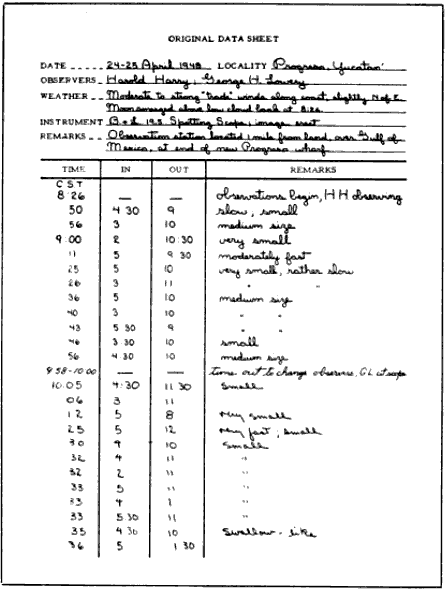 ORIGINAL DATA SHEET
DATE -- 24-25 April 1948 LOCALITY Progreso, Yucatan
OBSERVERS - Harold Harry; George H. Lowery
WEATHER -- Moderate to strong "trade" winds along coast, slightly N of E.
Moon emerged above low cloud bank at 8:26.
INSTRUMENT B & L 19.5 Spotting Scope; image erect
REMARKS -- Observation station located 1 mile from land, over Gulf of
Mexico, at end of new Progreso wharf
TIME IN OUT REMARKS
CST
8:26 — — observations begin, HH observing
50 4 30 9 slow, small
56 3 10 medium size
9:00 2 10:30 very small
11 5 9 30 moderately fast
25 5 10 very small, rather slow
26 3 11 " "
36 5 10 medium size
40 3 10 " "
43 5 30 9 " "
46 3 30 10 small
56 4 30 10 medium size
9:58-10:00 — — time out to change observers, GL at scope
10:05 4:30 11 30 Small
06 3 11
12 5 8 very small
25 5 12 very fast, small
30 4 10 Small
32 4 11 "
32 2 11 "
33 5 11 "
33 4 1 "
33 5 30 11 "
35 4 30 10 Swallow-like
36 5 1 30